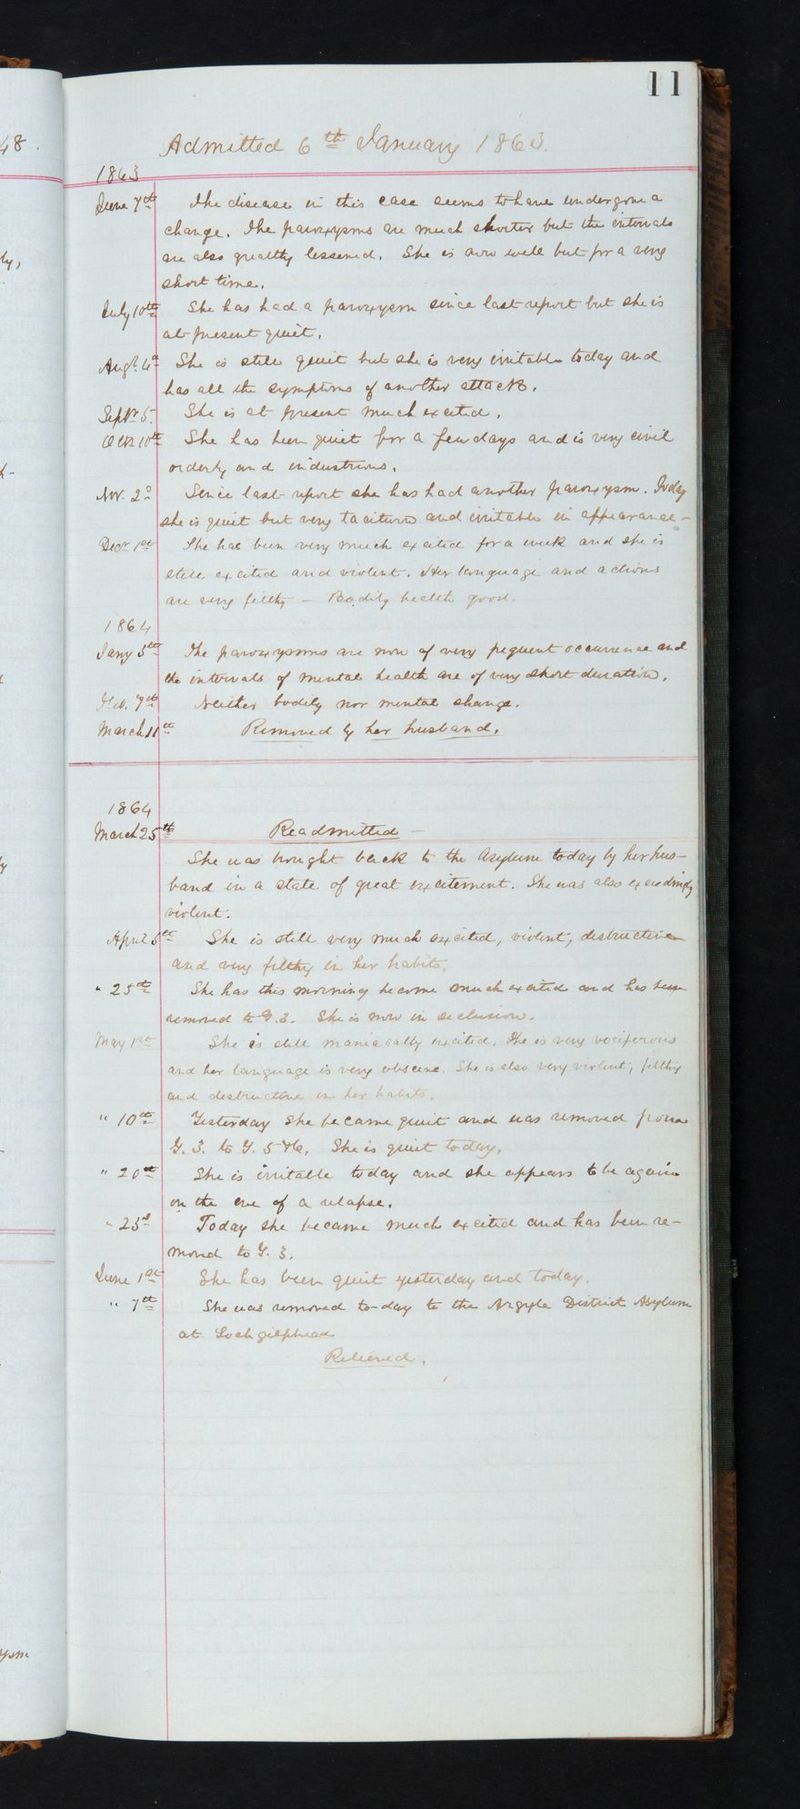 11
48.
Admitted 6th January 1863.
1863
June 7th The disease in this case seems to have undergone a
change. The paroxysms are much shorter but the intervals
are also greatly lessened. She is now well but for a very
short time.
July 10th She has had a paroxysm since last report but she is
at present quiet.
Augt. 4th She is still quiet but she is very irritable today and
has all the symptoms of another attack.
Septr 5. She is at present much excited.
Octr 10th She has been quiet for a few days and is very civil
orderly and industrious.
Nov. 2d Since last report she has had another paroxysm. Today
she is quiet but very taciturn and irritable in appearance –
Decr 1st She has been very much excited for a week and she is
still excited and violent. Her language and actions
are very filthy – Bodily health good.
1864
Jany 5th The paroxysms are now of very frequent occurrence and
the intervals of mental health are of very short duration.
Feb. 7th Neither bodily nor mental change.
March 11th Removed by her husband.
1864
March 25th Readmitted –
She was brought back to the Asylum today by her hus-
band in a state of great excitement. She was also exceedingly
violent.
April 5th She is still very much excited, violent, destructive
and very filthy in her habits.
" 25th She has this morning become much excited and has been
removed to G. 3. She is now in seclusion.
May 1st She is still maniacally excited. She is very vociferous
and her language is very obscene. She is also very violent, filthy
and destructive in her habits.
" 10th Yesterday she became quiet and was removed from
G. 3. to G. 5 & 6. She is quiet today.
" 20th She is irritable today and she appears to be again
on the eve of a relapse.
" 23d Today she became much excited and has been re-
moved to G. 3.
June 1st She has been quiet yesterday and today.
" 7th She was removed to-day to the Argyle District Asylum
at Lochgilphead
Relieved.